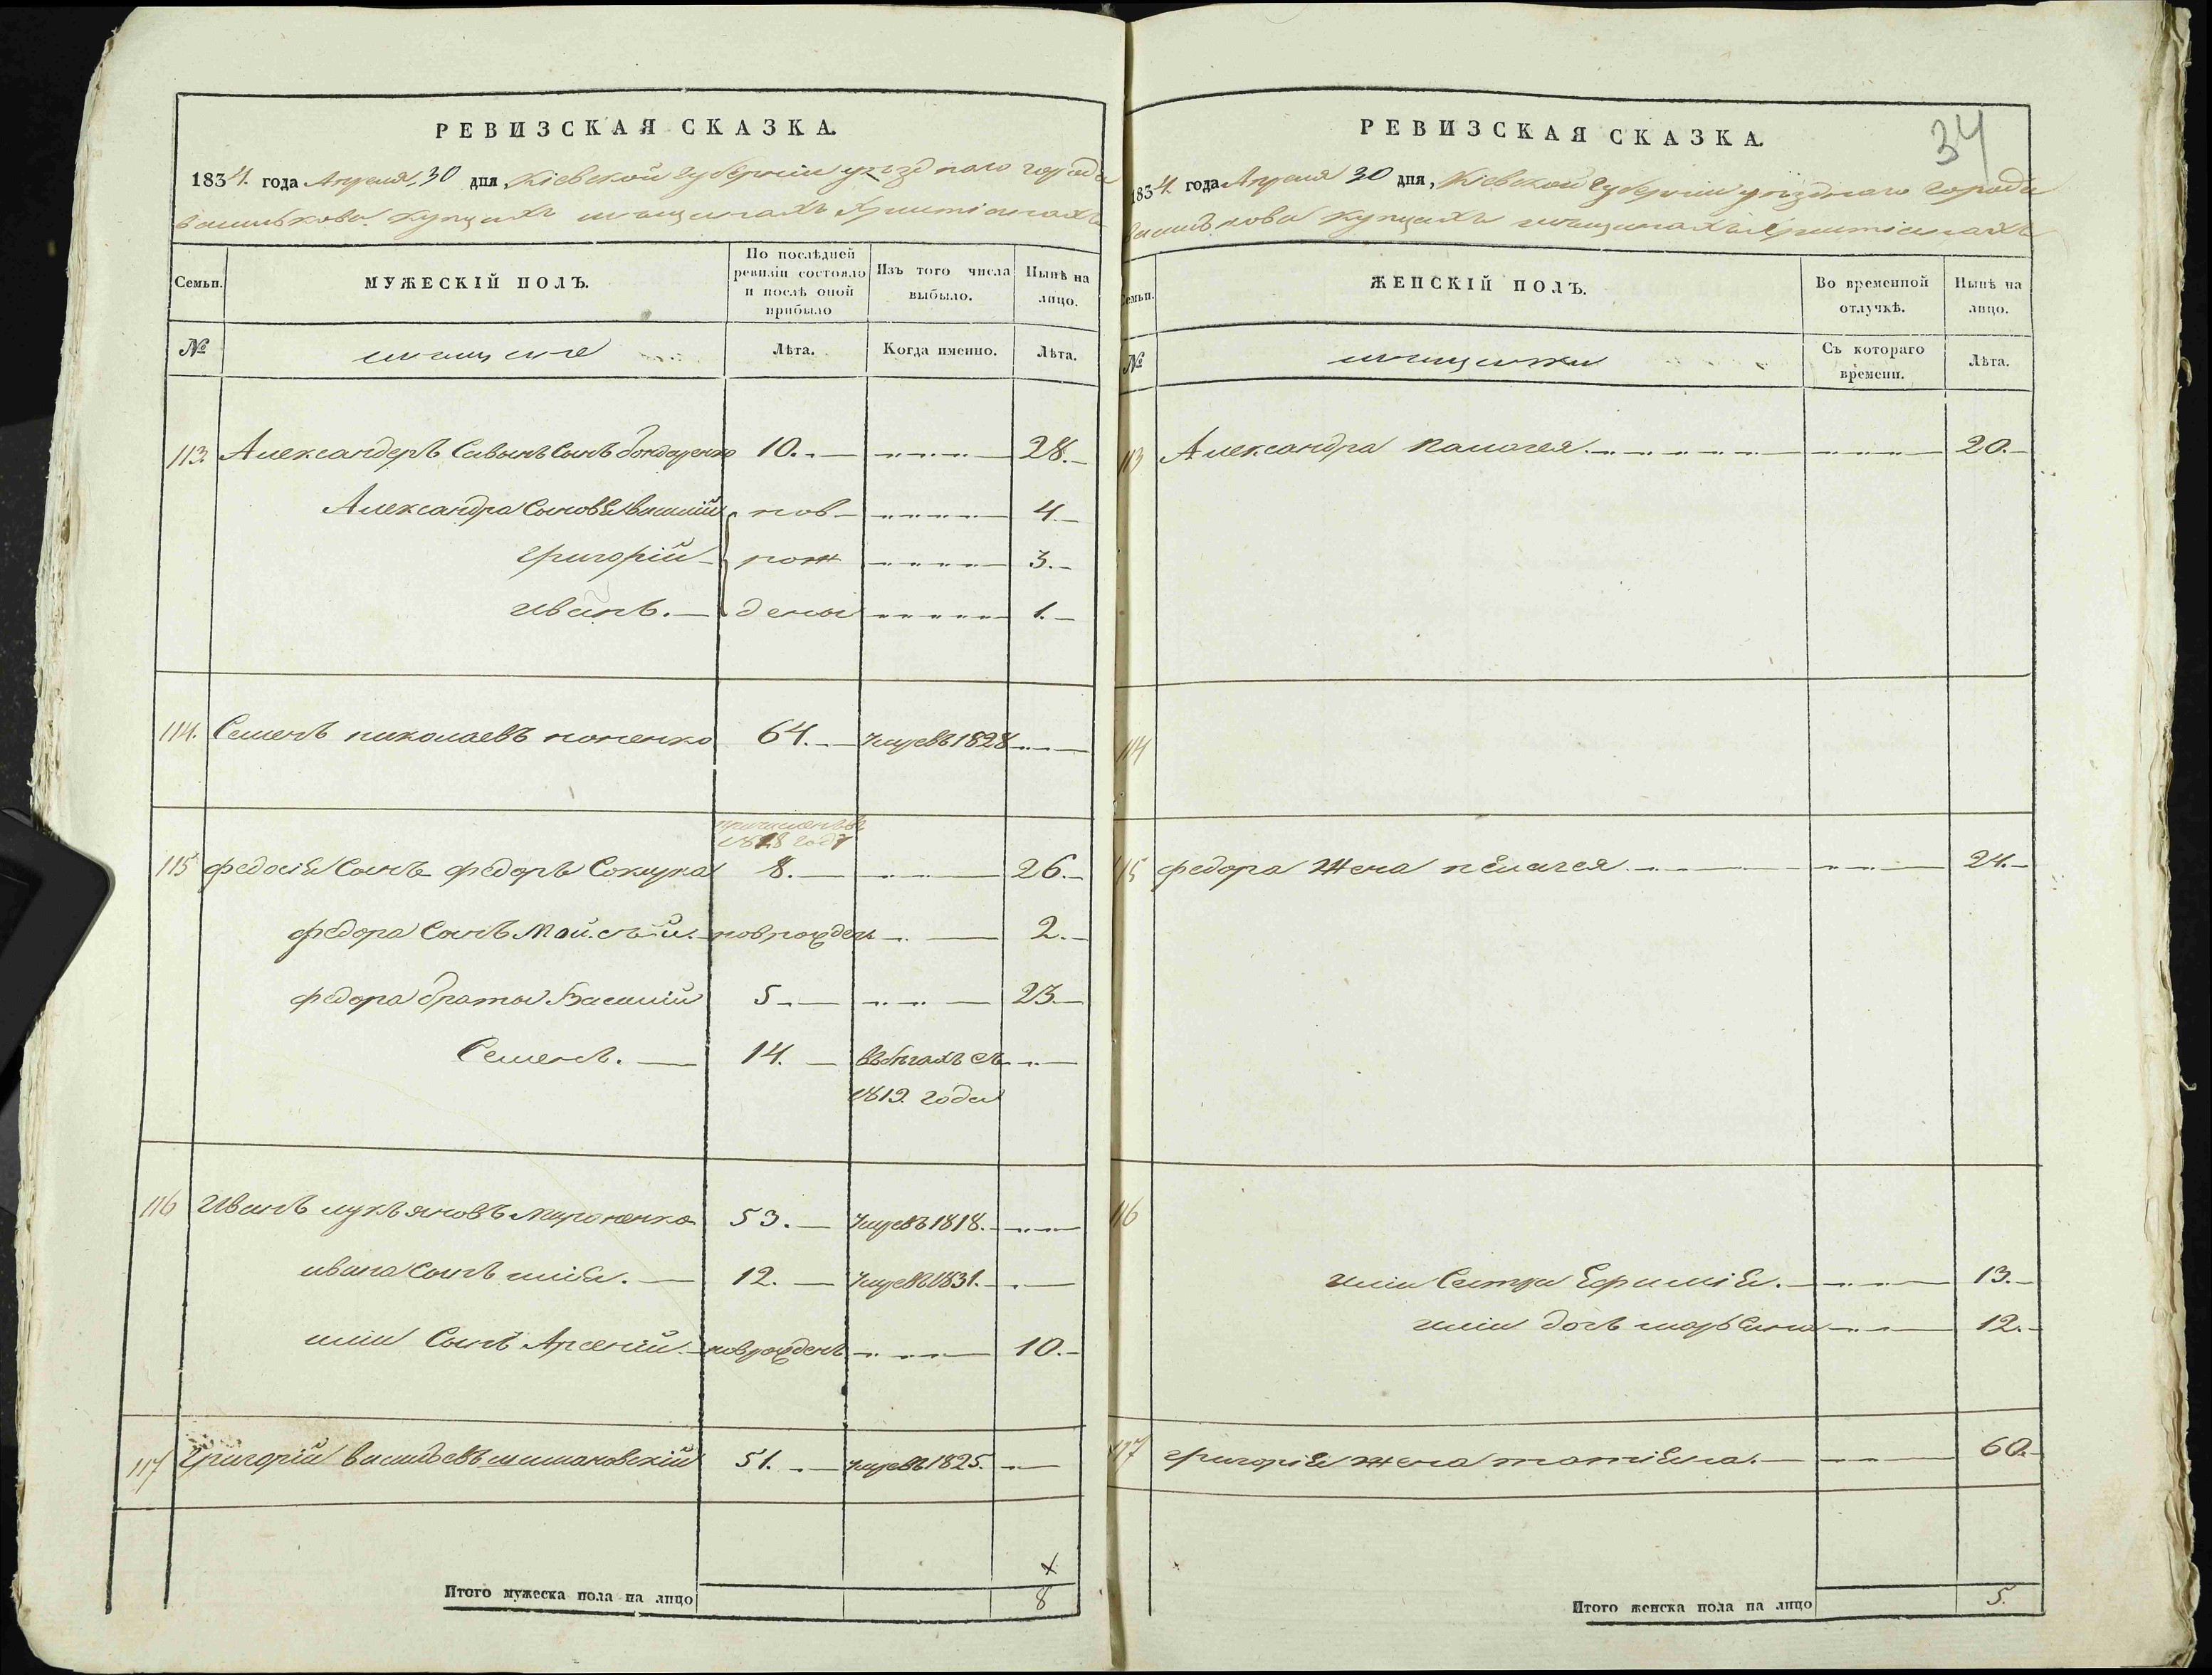 РЕВИЗСКАЯ СКАЗКА.
1834. года Апреля 30 дня, Кіевской Губерніи уѣзднаго города
Василькова купцахъ мещанахъ Христіанахъ
Семьи. МУЖЕСКІЙ ПОЛЪ. По послѣдней ревизіи состояло и послѣ оной прибыло Изъ того числа выбыло. Нынѣ на лицо.
№ мещане Лѣта. Когда именно. Лѣта.
113. Александеръ Савынъ Сынъ бондаренко 10. 28.
Александра Сыновья василій нов 4.
григорій рож 3.
иванъ. дены 1.
114. Семенъ николаевъ попенко 64. Умре въ 1828
причисленъ въ
1818 году
115 федосія Сынъ федоръ Сокура 8. 26.
федора Сынъ Мойсѣй. новрожден 2.
федора браты Василій 5 23.
Семенъ. 14. въ бѣгахъ съ
1819. года
116 Иванъ лукъяновъ мироненко 53. Умре въ 1818.
ивана Сынъ илія. 12. Умре въ 1831.
иліи Сынъ Арсеній. новрожденъ 10.
117 Григорій васильевъ шимановскій 51. Умре въ 1825.
Итого мужеска пола на лицо 8
РЕВИЗСКАЯ СКАЗКА.
34
1834. года Апреля 30 дня, Кіевской Губерніи уѣзднаго города
Василькова купцахъ мещанахъ Христіанахъ
Семьи. ЖЕНСКІЙ ПОЛЪ. Во временной отлучкѣ. Нынѣ на лицо.
№ мещанки Съ котораго времени. Лѣта.
113 Александра Палагея. 20.
114
115 федора жена пелагея. 24.
116
иліи Сестра Ефимія. 13.
иліи дочь марьяна 12.
117 григорія жена татіяна. 60.
Итого женска пола на лицо 5.